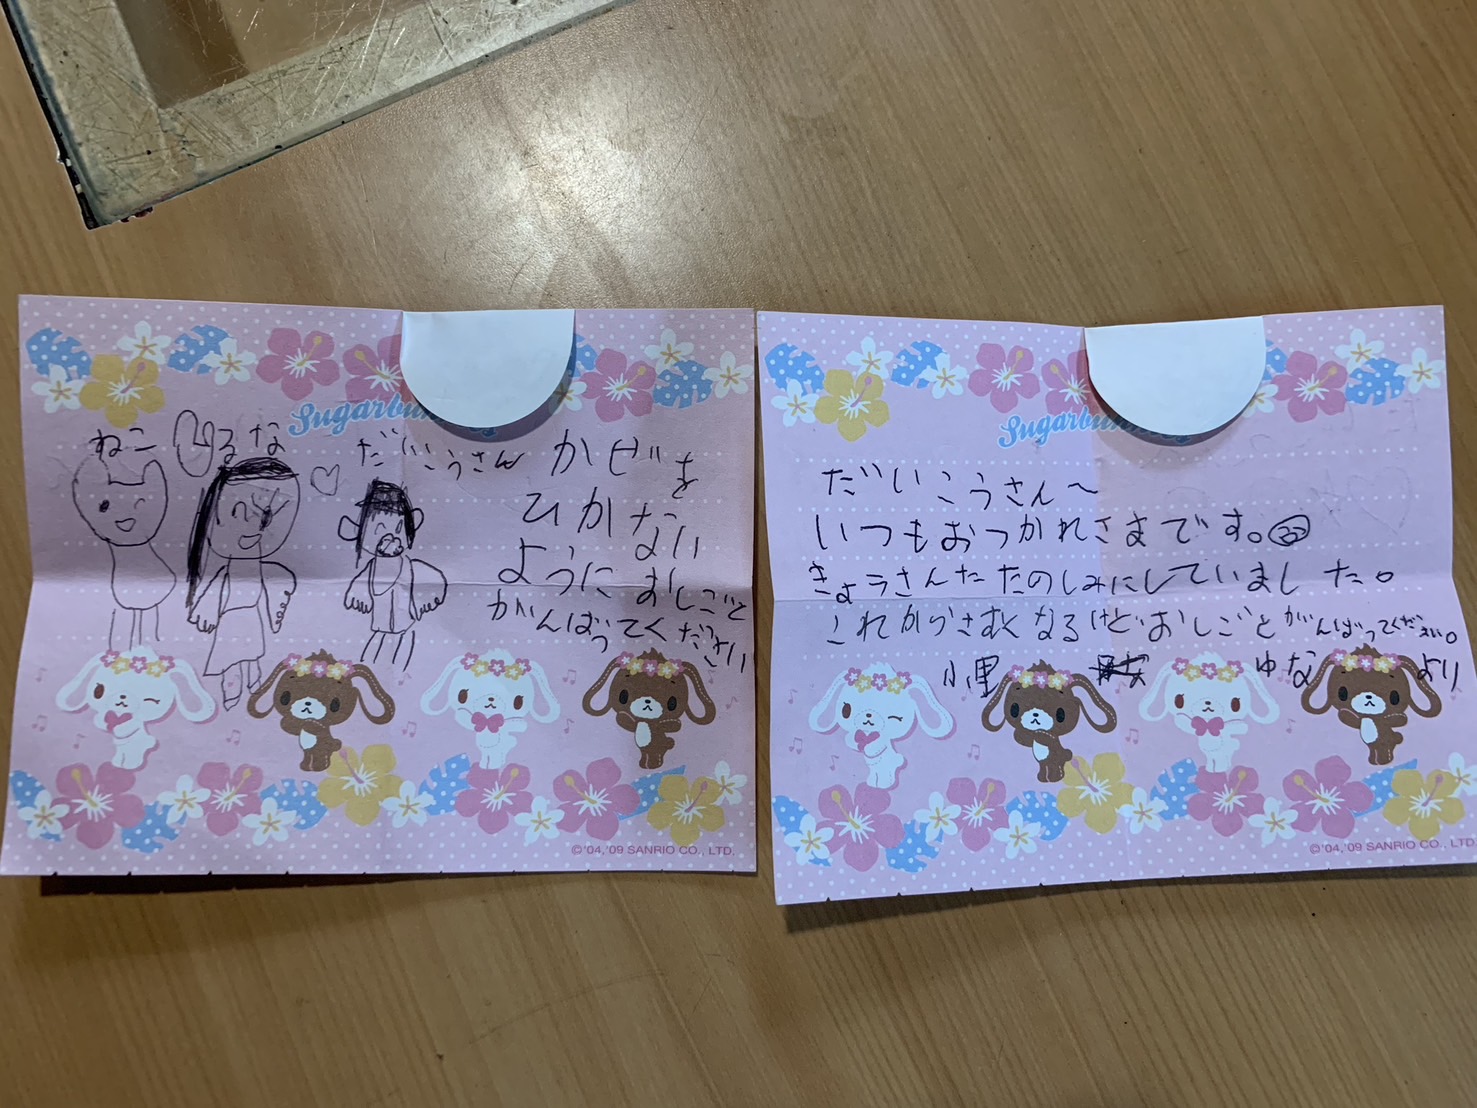 Sugarbun
ねこ
るな
だいこうさん
かぜを
ひかない
ように おしごと
がんばってください
©'04,'09 SANRIO CO., LTD.
Sugarbun
だいこうさん～
いつもおつかれさまです。
きょうさんたたのしみにしていました。
これからさむくなるけどおしごとがんばってください。
小里 ゆな より
©'04,'09 SANRIO CO., LTD.